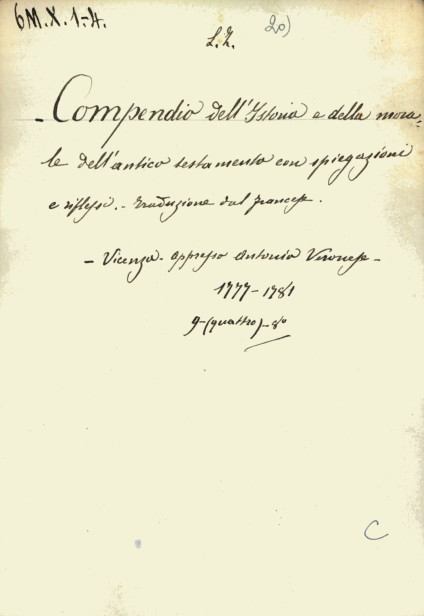 6M.X.1-4.
20)
L.Z.
- Compendio dell'Istoria e della mora=
le dell'antico testamento con spiegazioni
e riflessi. - Traduzione dal francese.
- Vicenza. appresso Antonio Veronese -
1777-1781
(quattro)-8°
C